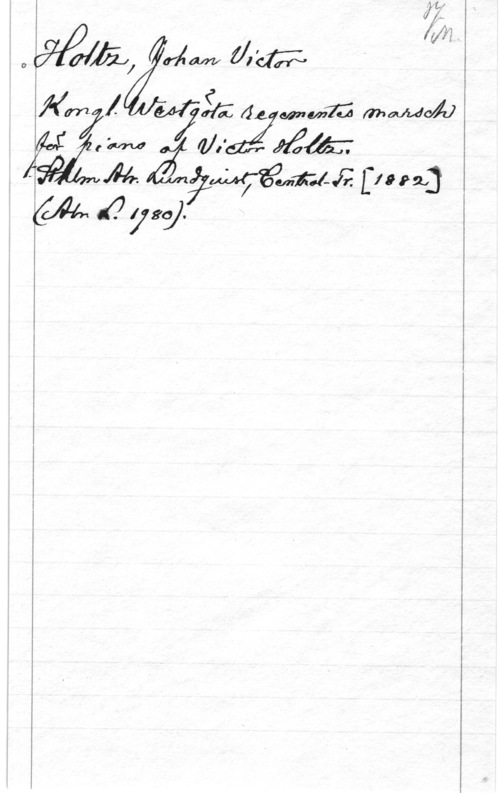 Holtz, Johan Victor
Kongl. Westgöta regementes marsch
för piano af Victor Holtz.
Sthlm Abr. Lundquist, Central-Tr. [1882]
(Abr L. 1980).